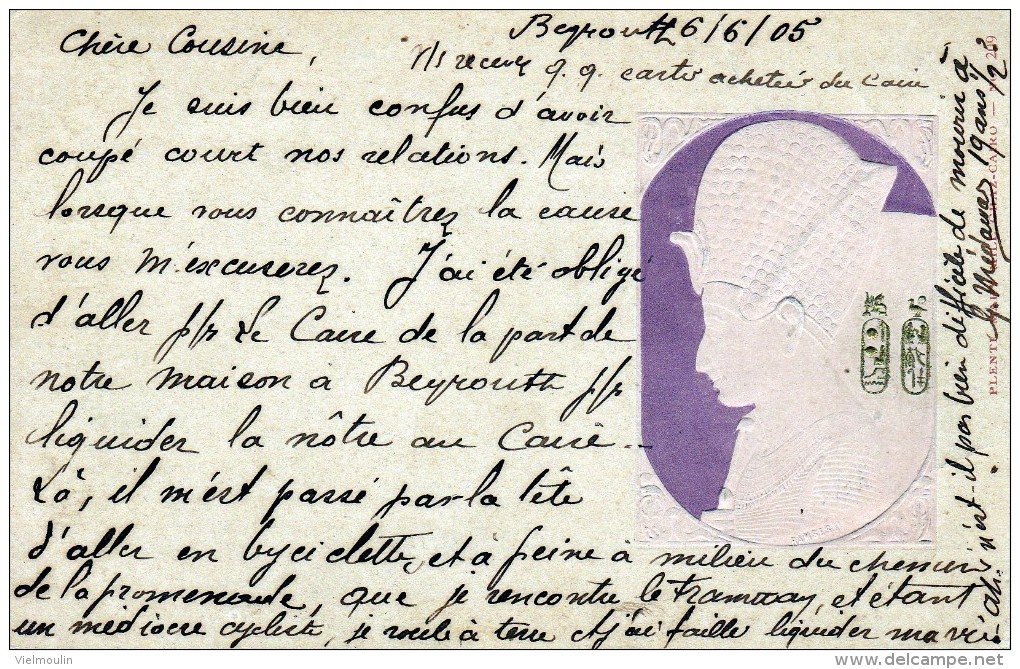 Beyrouth 6/6/05
Chère Cousine,
recevez q.q. cartes achetées du Caire
Je suis bien confus d'avoir
coupé court nos relations. Mais
lorsque vous connaîtrez la cause
vous m'éxcuserez. J'ai été obligé
d'aller p/r Le Caire de la part de
notre maison à Beyrouth p/r
liquider la nôtre au Caire –
Là, il m'est passé par la tête
d'aller en byciclette, et à peine à milieu du chemin
de la promenade, que je rencontre le Tramway, et étant
un médiocre cycliste, je roule à terre et j'ai failli liquider ma vie
ah! n'est-il pas bien difficile de mourir à
19 ans 1/2?
RAMSES
PLENTL
CAIRO — 209
Vielmoulin
delcampe.net